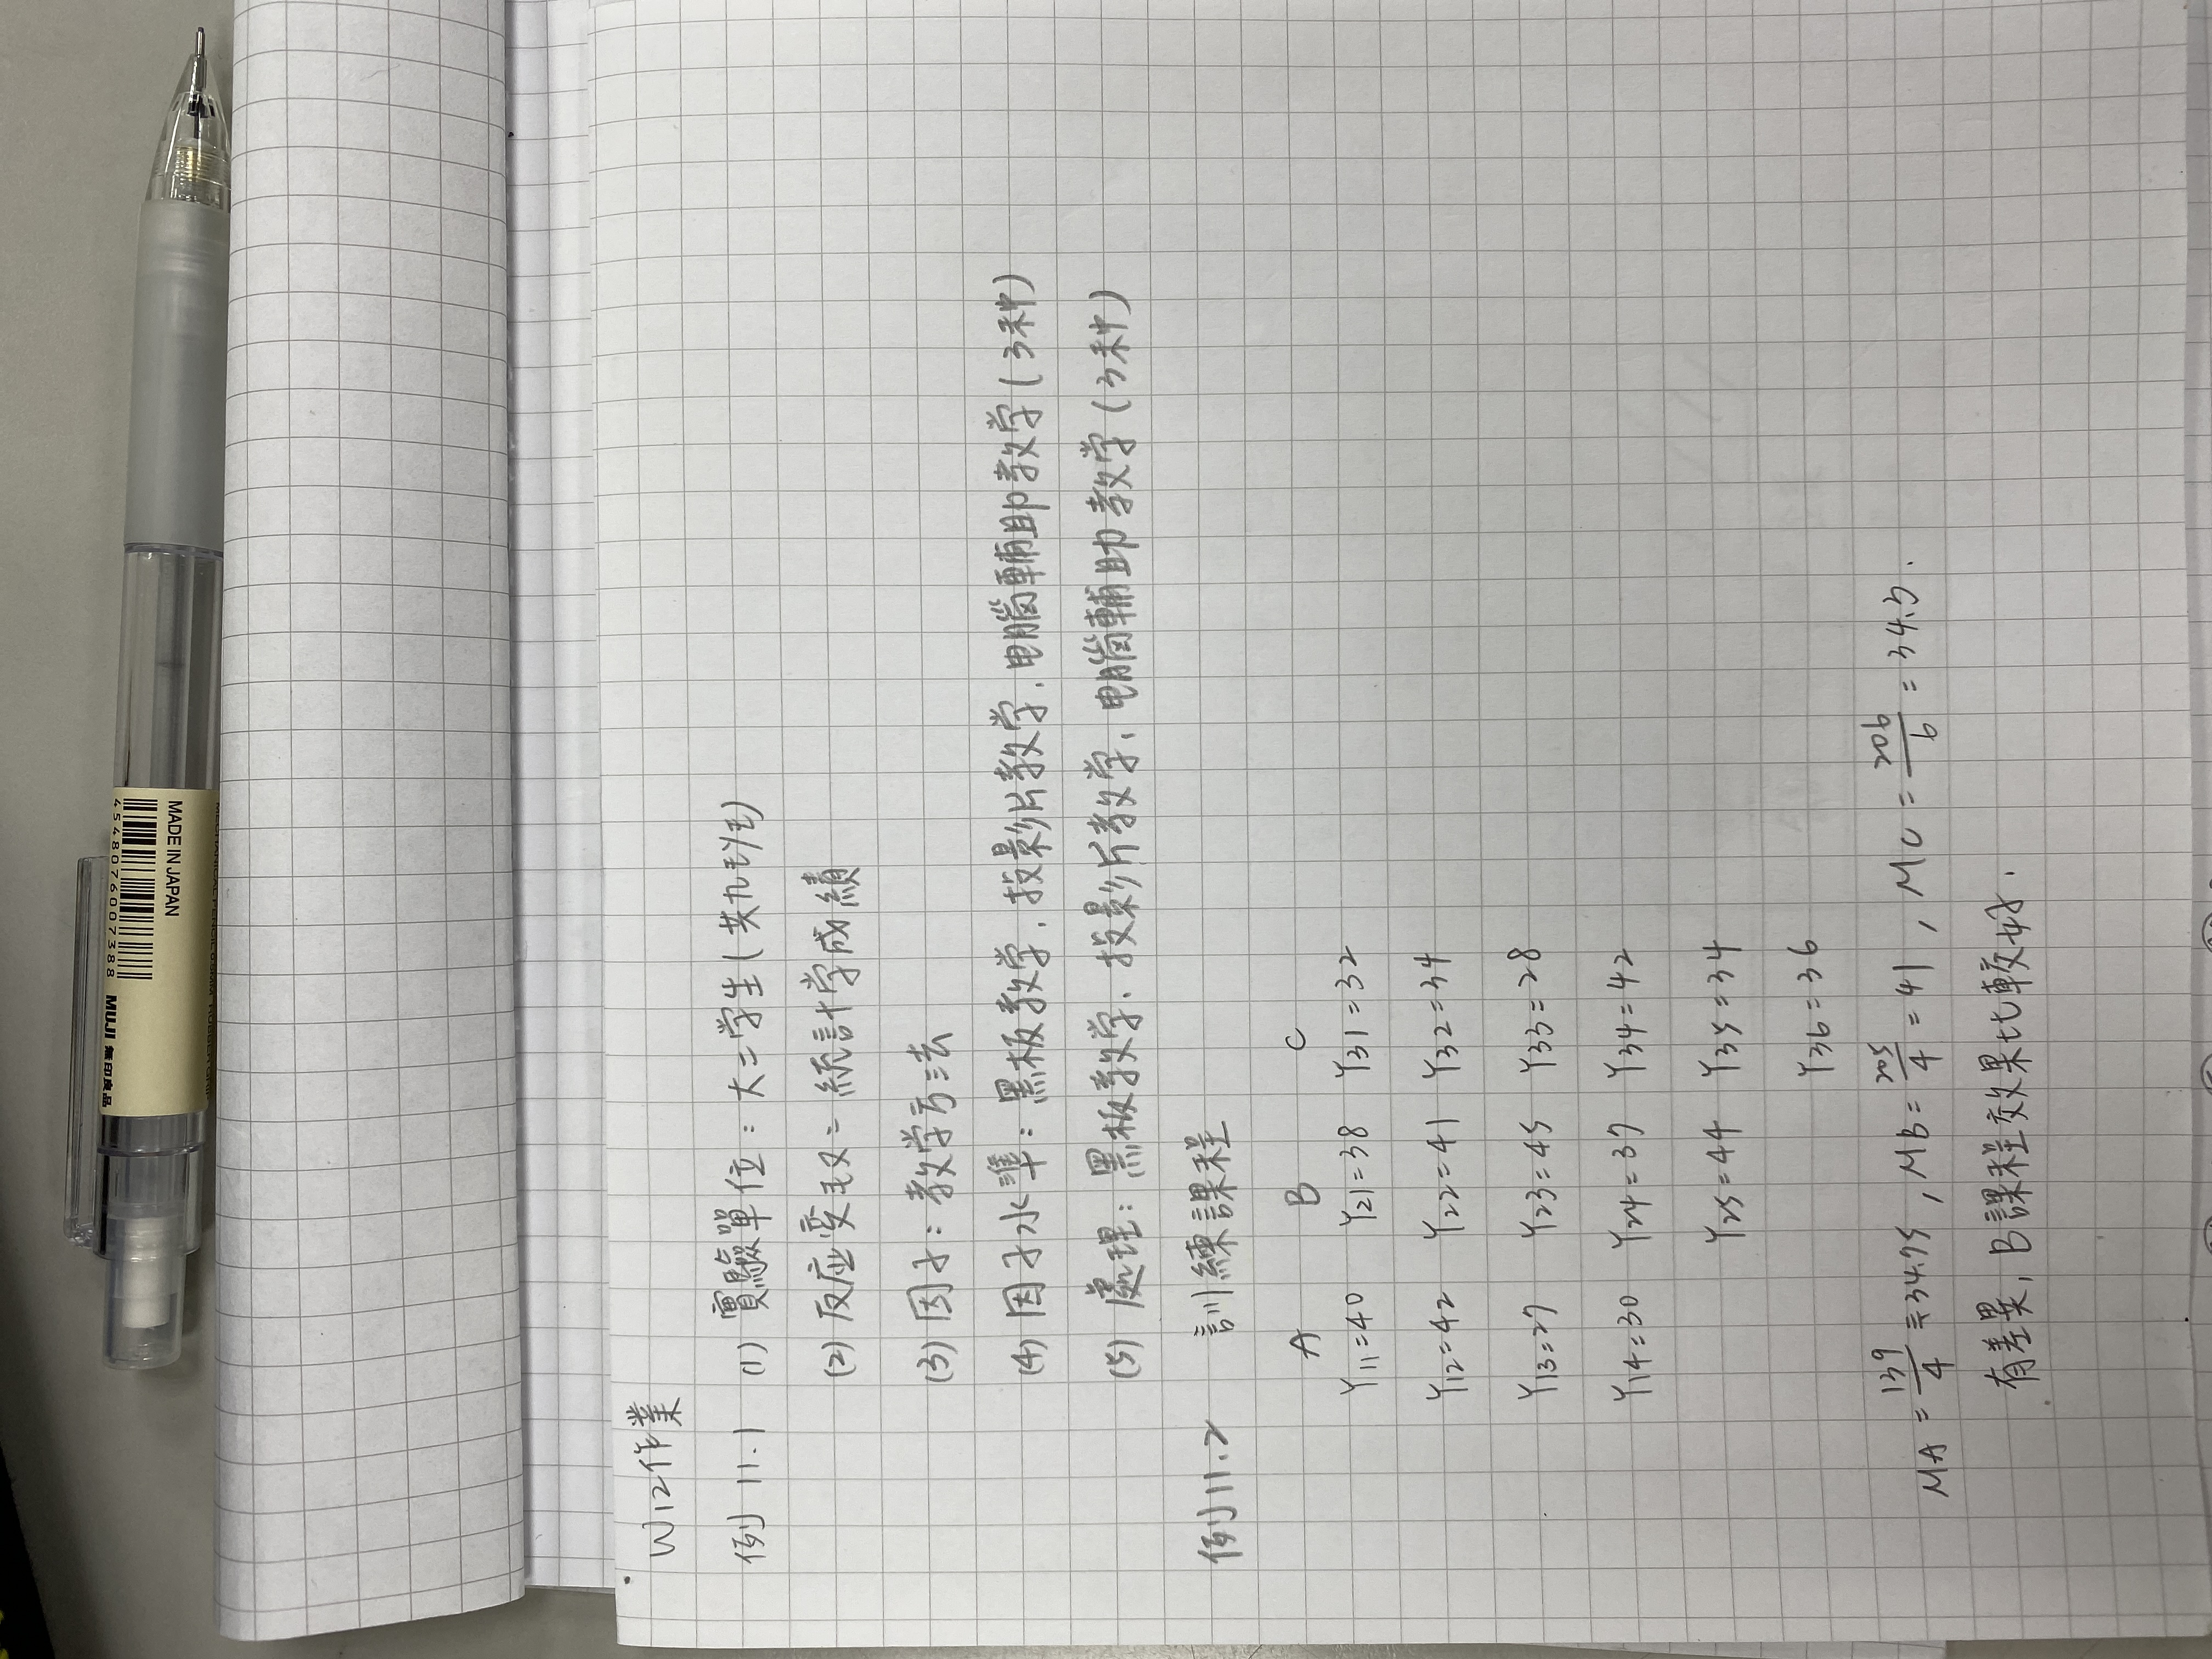 4548076007388
MUJI 無印良品
MADE IN JAPAN
W12作業
例 11.1 (1) 實驗單位：大二学生(共九班)
(2) 反应变数：統計学成績
(3) 因子：教学方法
(4) 因子水準：黑板教学、投影片教学、电腦輔助教学(3种)
(5) 處理：黑板教学、投影片教学、电腦輔助教学(3种)
例11.2 訓練課程
A B C
Y11=40 Y21=38 Y31=32
Y12=42 Y22=41 Y32=34
Y13=27 Y23=45 Y33=28
Y14=30 Y24=37 Y34=42
Y25=44 Y35=34
Y36=36
MA = 139/4 = 34.75, MB = 205/4 = 41, MC = 206/6 = 34.3.
有差異, B課程效果比較好.